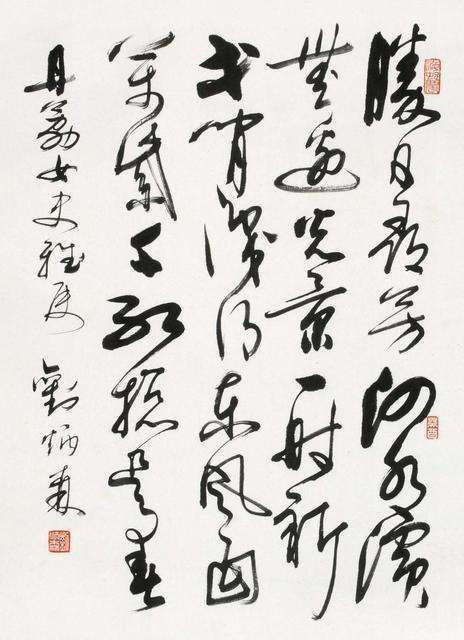 勝日尋芳泗水濱
無邊光景一時新
等閒識得東風面
萬紫千紅總是春
丹荔女史雅屬 劉炳森
癸酉